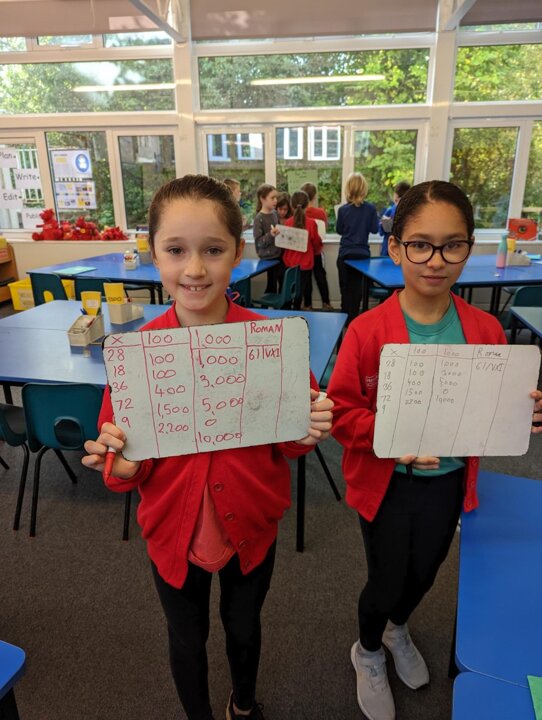 Plan
Write
Edit
X 100 1,000 ROMAN
28 100 1,000 61/VXI
18 100 3,000
36 400 5,000
72 1,500 0
9 2,200 10,000
X 100 1,000 Roman
28 100 1,000 61/VXI
18 100 3000
36 400
72 1500 0
9 2200